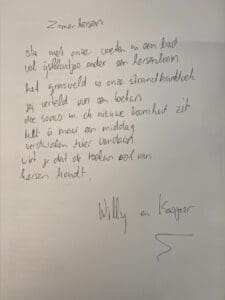 Zomerkersen
sta met onze voeten in een bad
vol ijsklontjes onder een kersenboom
het grasveld is onze strandhanddoek
jij vertelt over een toekan
die soms in de nieuwe boomhut zit
hij is maar een middag
verdwalen hier vandaan
wist je dat de toekan veel van
kersen houdt
Willy en Kasper